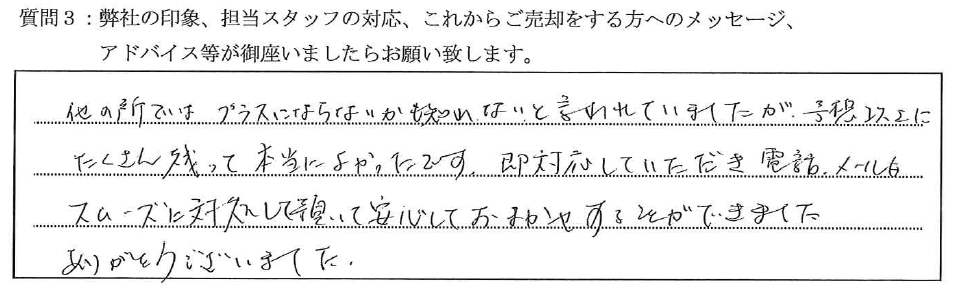 質問3:弊社の印象、担当スタッフの対応、これからご売却をする方へのメッセージ、
アドバイス等が御座いましたらお願い致します。
他の所ではプラスにならないかも知れないと言われていましたが、予想以上に
たくさん残って本当によかったです。即対応していただき電話、メールも
スムーズに対処して頂いて安心しておまかせすることができました
ありがとうございました。